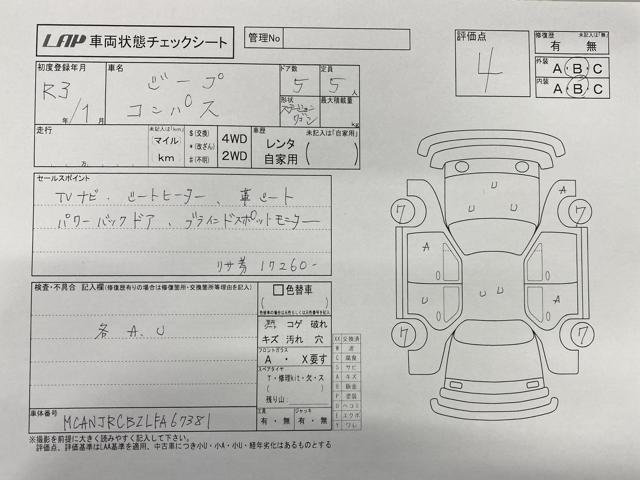 LAP 車両状態チェックシート
管理No
評価点
4
修復歴 未記入は「無」
有 ・ 無
外装 A・B・C
内装 A・B・C
初度登録年月
R3年/1月
車名
ジープ
コンパス
ドア数
5
定員
5人
形状
ステーションワゴン
最大積載量
kg
走行
万
未記入は「km」
(マイル)
km
$(交換)
*(改ざん)
#(不明)
4WD
2WD
車歴 未記入は「自家用」
レンタ
自家用
セールスポイント
TVナビ、シートヒーター、革シート
パワーバックドア、ブラインドスポットモニター
リサ券 17260-
検査・不具合 記入欄(修復歴有りの場合は修復箇所・交換箇所等理由を記入)
各A、U
色替車
コゲ 破れ
キズ 汚れ 穴
フロントガラス
A ・ X要す
スペアタイヤ
T・修理kit・欠・ス
残り山:
工具
有・無
ジャッキ
有・無
XX 交換済
W 波
C 腐食
S サビ
A キズ
B 鈑金
P 塗装
U ヘコミ
E エクボ
Y ワレ
車体番号
MCANJRCBZLFA67381
※撮影を前提に大きく読みやすく記入して下さい。
評価点、評価基準はLAA基準を適用、中古車につき小U・小A・小U・経年劣化はあるものとする
A
U
U
U
7
7
A
A
U
U
U
7
7